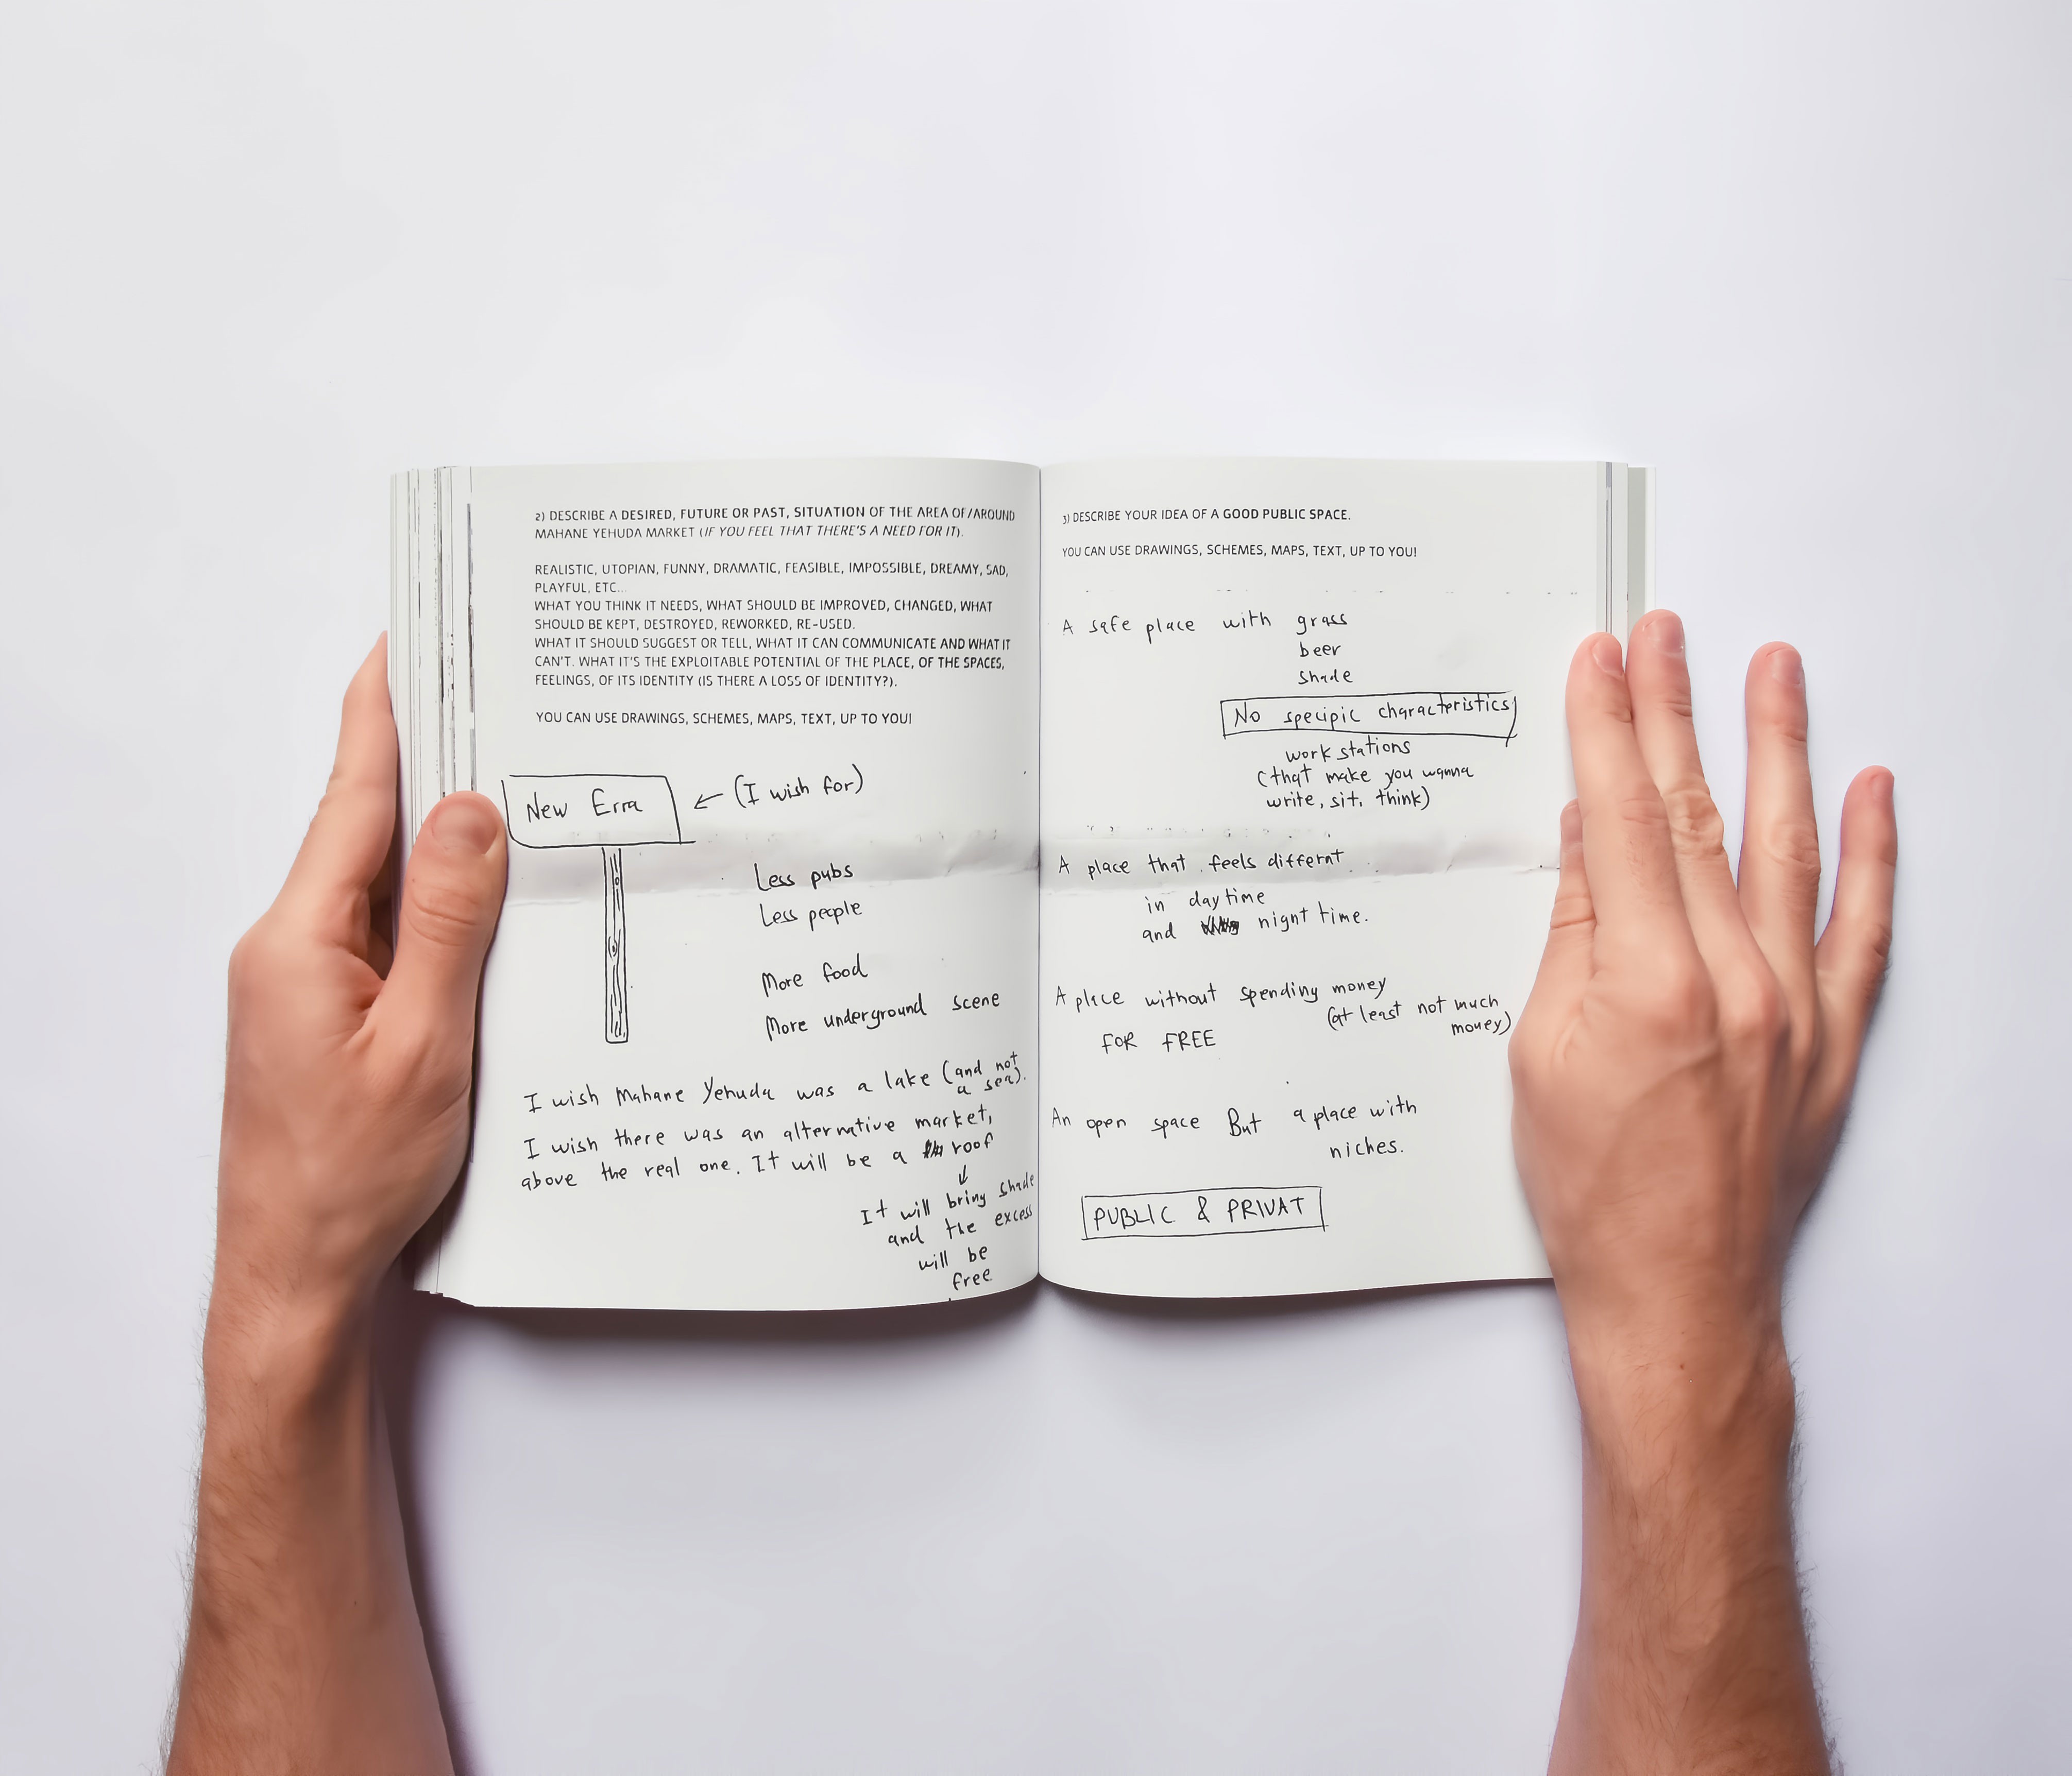 2) DESCRIBE A DESIRED, FUTURE OR PAST, SITUATION OF THE AREA OF/AROUND
MAHANE YEHUDA MARKET (IF YOU FEEL THAT THERE'S A NEED FOR IT).
REALISTIC, UTOPIAN, FUNNY, DRAMATIC, FEASIBLE, IMPOSSIBLE, DREAMY, SAD,
PLAYFUL, ETC...
WHAT YOU THINK IT NEEDS, WHAT SHOULD BE IMPROVED, CHANGED, WHAT
SHOULD BE KEPT, DESTROYED, REWORKED, RE-USED.
WHAT IT SHOULD SUGGEST OR TELL, WHAT IT CAN COMMUNICATE AND WHAT IT
CAN'T. WHAT IT'S THE EXPLOITABLE POTENTIAL OF THE PLACE, OF THE SPACES,
FEELINGS, OF ITS IDENTITY (IS THERE A LOSS OF IDENTITY?).
YOU CAN USE DRAWINGS, SCHEMES, MAPS, TEXT, UP TO YOU!
New Erra ← (I wish for)
Less pubs
Less people
More food
More underground scene
I wish Mahane Yehuda was a lake (and not
a sea).
I wish there was an alternative market,
above the real one. It will be a roof
↓
It will bring shade
and the excess
will be
free
3) DESCRIBE YOUR IDEA OF A GOOD PUBLIC SPACE.
YOU CAN USE DRAWINGS, SCHEMES, MAPS, TEXT, UP TO YOU!
A safe place with grass
beer
shade
No specipic characteristics
work stations
(that make you wanna
write, sit, think)
A place that feels differnt
in daytime
and night time.
A place without spending money
(at least not much
money)
FOR FREE
An open space But a place with
niches.
PUBLIC & PRIVAT